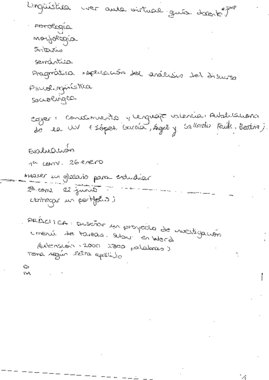 Lingüística ver aula virtual guía docente
Fonología
Morfología
Sintaxis
Semántica
Pragmática + aplicación del análisis del discurso
Psicolingüística
Sociolingca
Coger: conocimiento y lenguaje Valencia: Publicaciones
de la UV López García, Ángel y
Evaluación
1ª conv. 26 enero
Hacer un glosario para estudiar
2ª conv 22 junio
(entregar un portfolio)
PRÁCTICA: Diseñar un proyecto de investigación
en Word
Extensión: 2000 palabras)
Tema según letra apellido